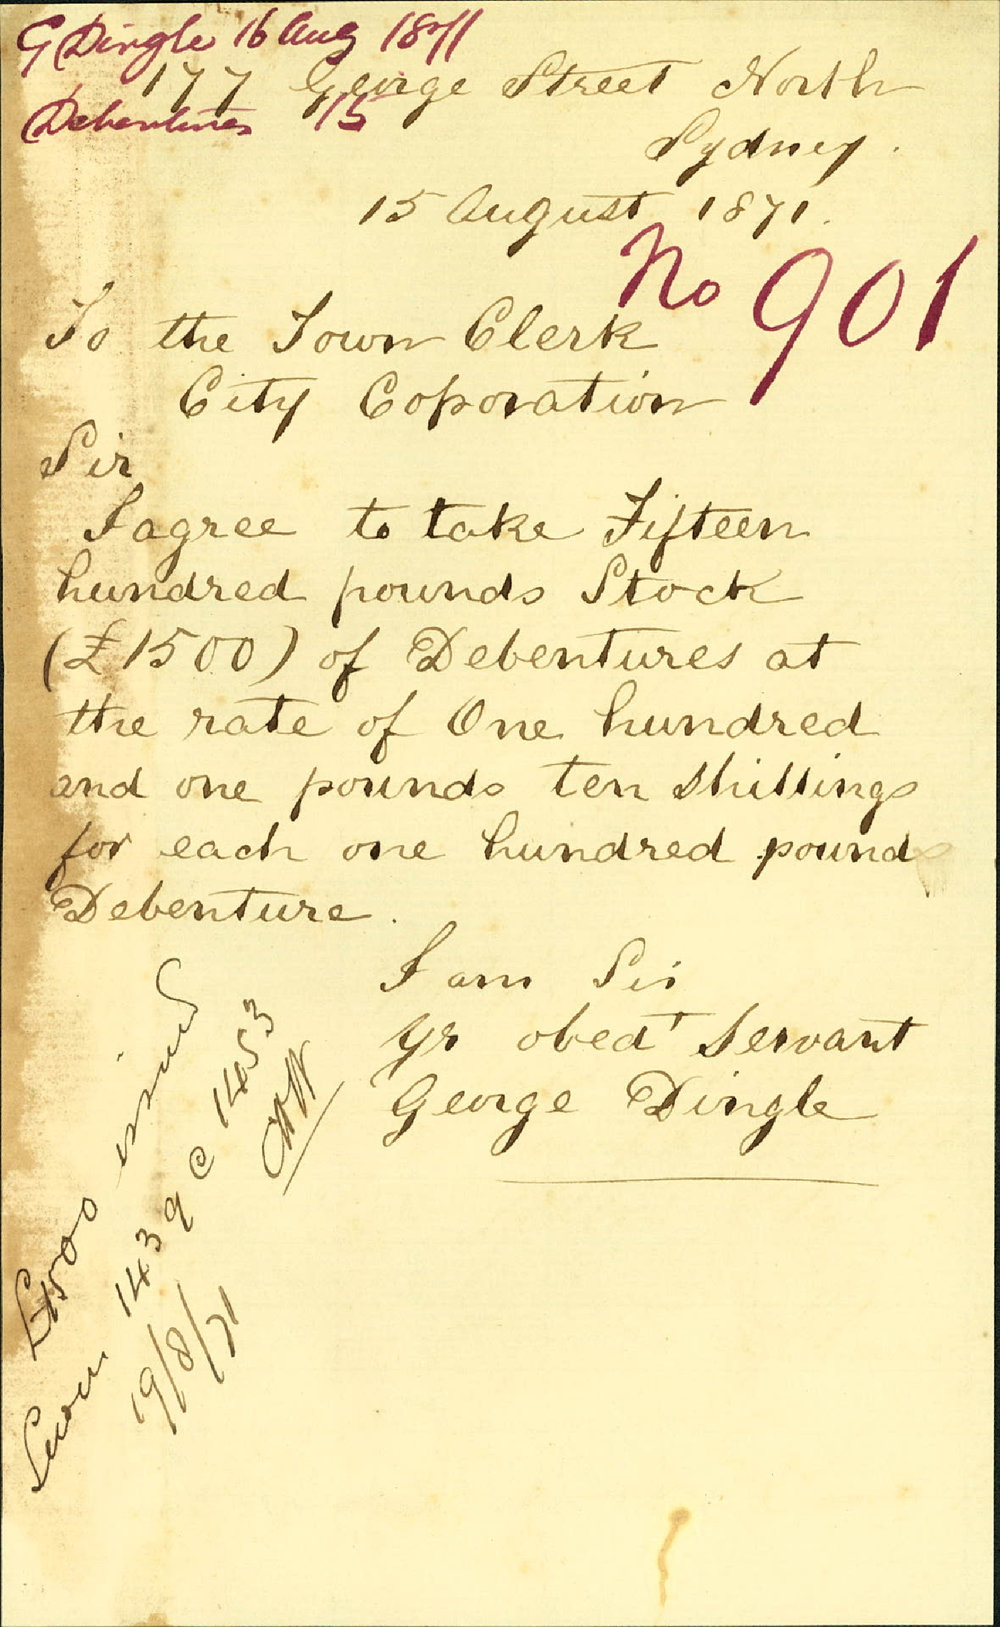 G Dingle 16 Aug 1871
Debentures 15
177 George Street North
Sydney.
15 August 1871.
No 901
To the Town Clerk
City Coporation
Sir
I agree to take Fifteen
hundred pounds Stock
(£1500) of Debentures at
the rate of One hundred
and one pounds ten shillings
for each one hundred pound
Debenture.
I am Sir
Yr obedt Servant
George Dingle
£1500 issued
1439 @ 1453
19/8/71